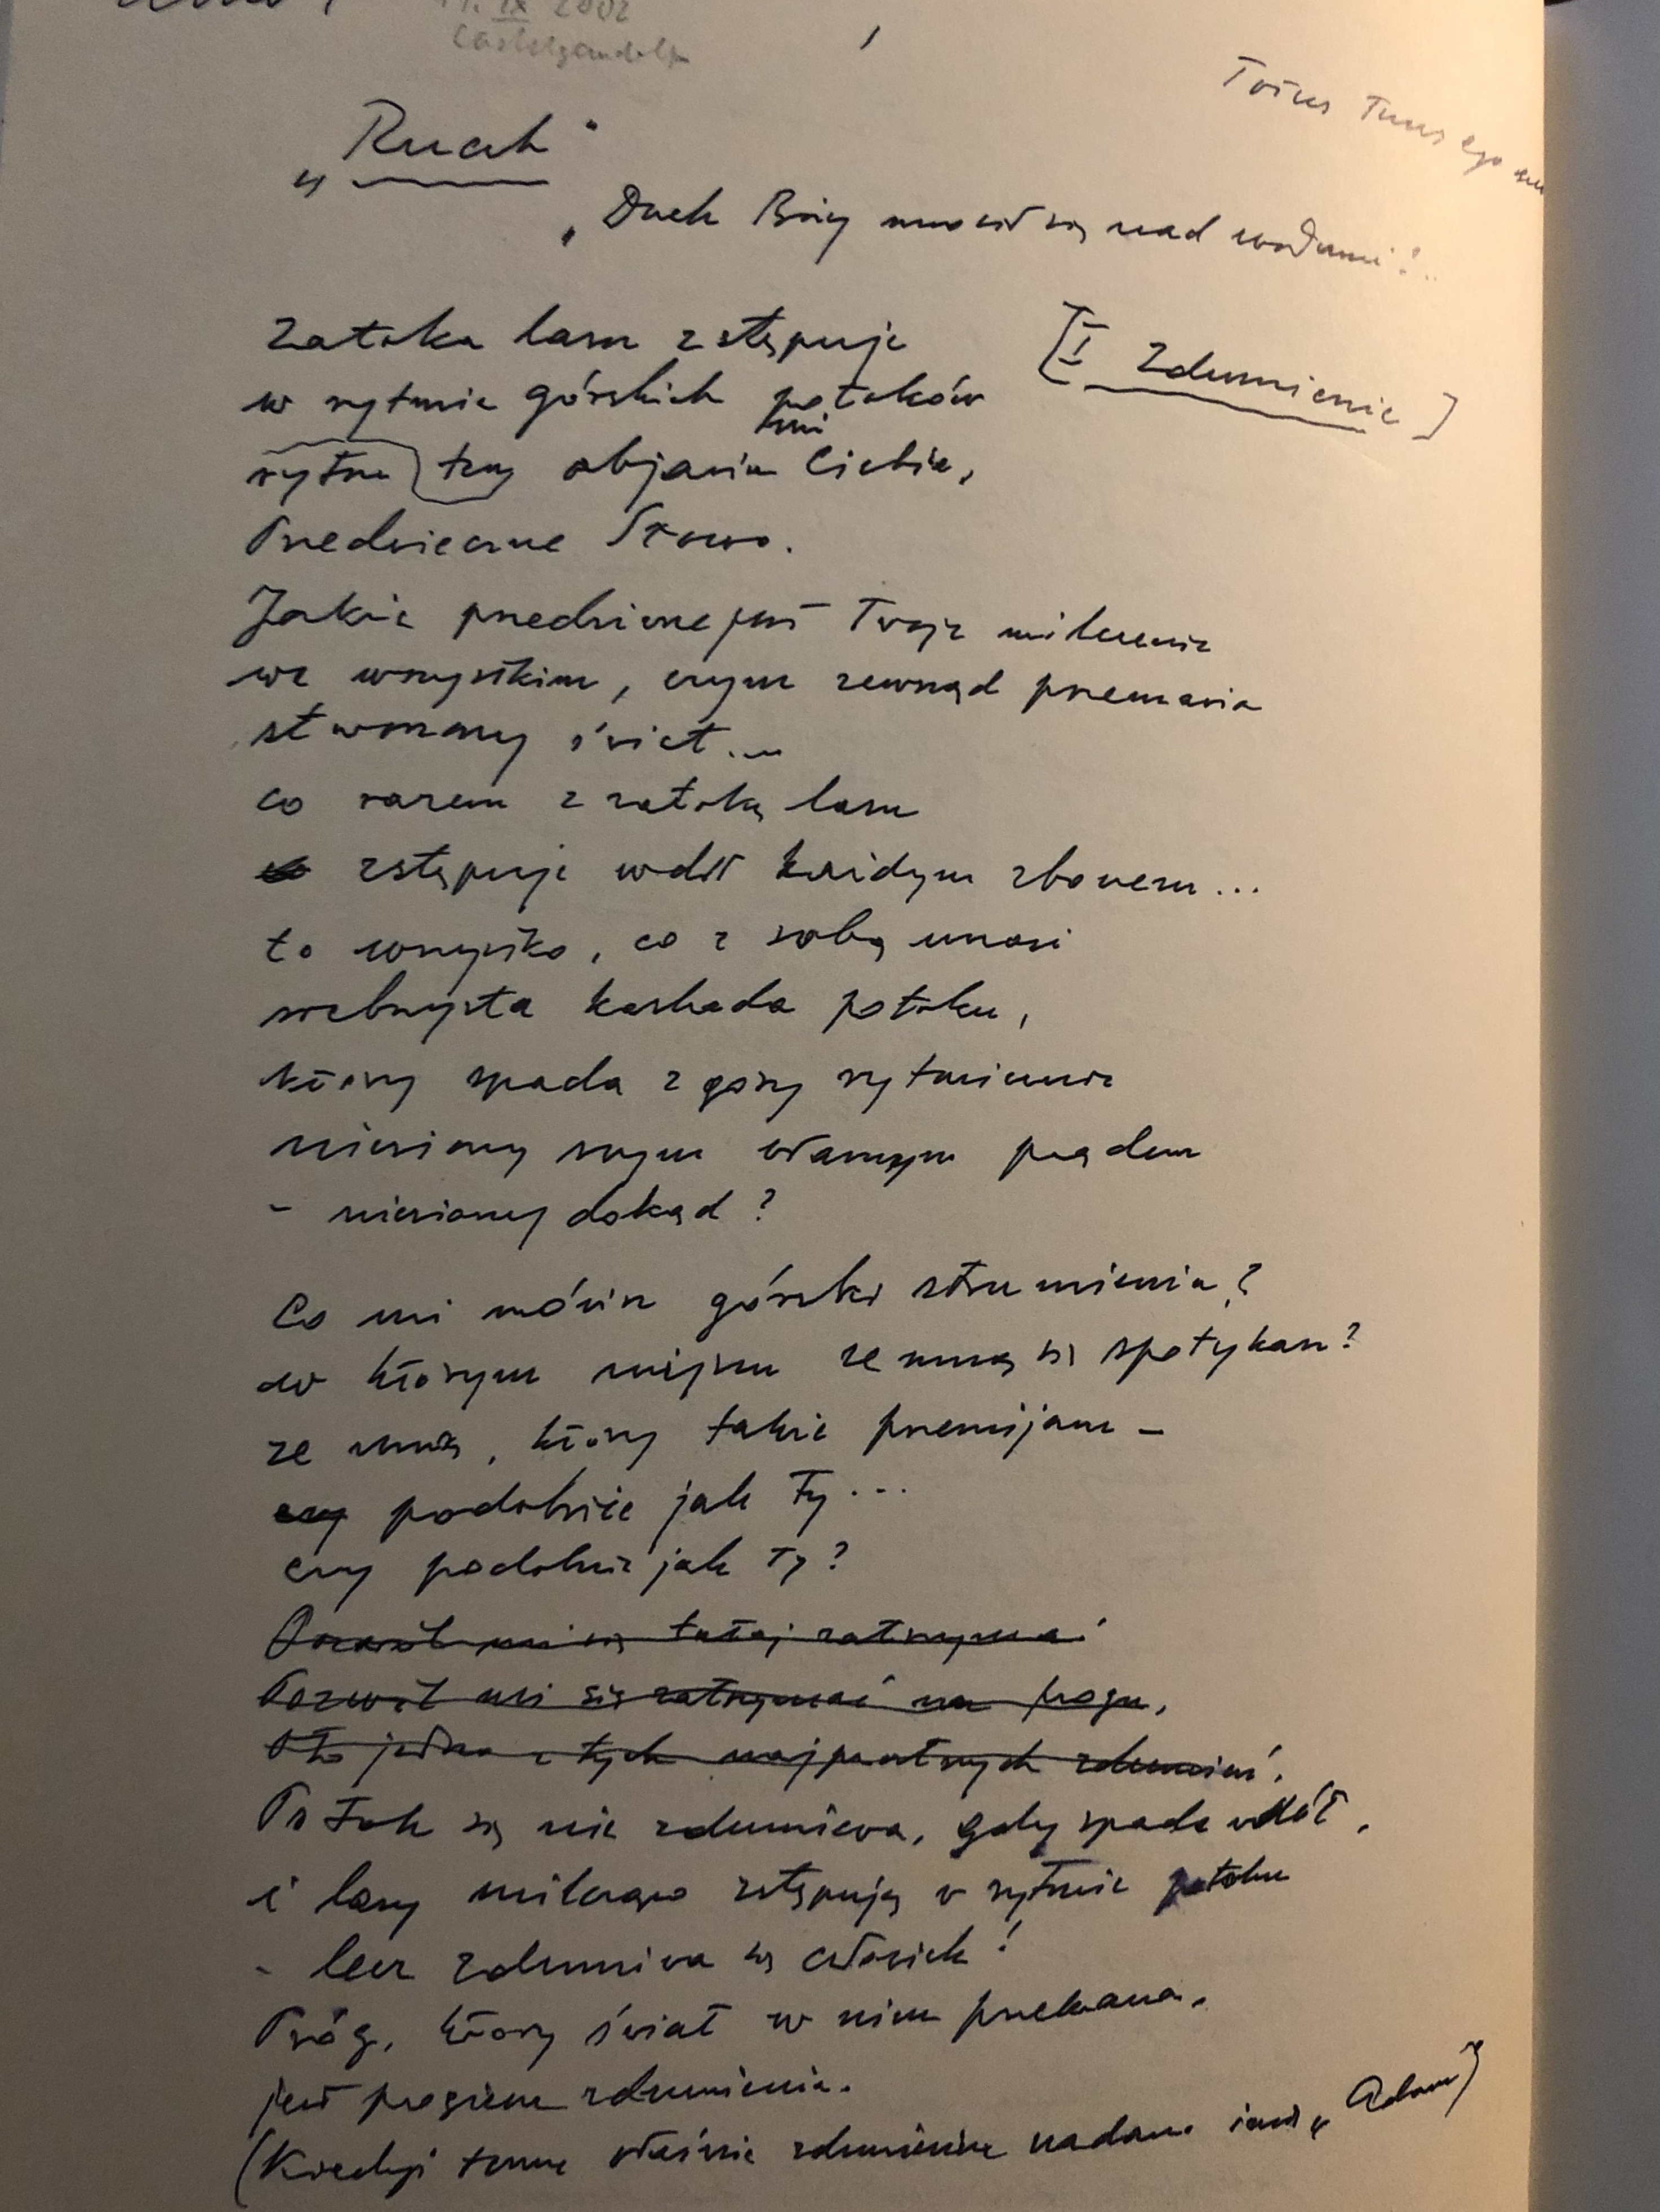 11. IX 2002
Castelgandolfo
1
Totus Tuus ego su
„Ruah"
„Duch Boży unosił się nad wodami"..
[I Zdumienie]
Zatoka lasu zstępuje
w rytmie górskich potoków
mi
rytm ten objawia Ciebie,
Przedwieczne Słowo.
Jakże przedziwne jest Twoje milczenie
we wszystkim, czym zewsząd przemawia
stworzony świat...
co razem z zatoką lasu
zstępuje w dół każdym zboczem...
to wszystko, co z sobą unosi
srebrzysta kaskada potoku,
który spada z góry rytmicznie
niesiony swym własnym prądem
- niesiony dokąd?
Co mi mówisz górski strumieniu?
w którym miejscu ze mną się spotykasz?
ze mną, który także przemijam –
czy podobnie jak Ty...
czy podobnie jak Ty?
Pozwól mi się tutaj zatrzymać
Pozwól mi się zatrzymać na progu,
Oto jedno z tych najprostszych zdumień.
Potok się nie zdumiewa, gdy spada w dół,
i lasy milcząco zstępują w rytmie potoku
- lecz zdumiewa się człowiek!
Próg, który świat w nim przekracza,
jest progiem zdumienia.
(Kiedyś temu właśnie zdumieniu nadano imię „Adam")